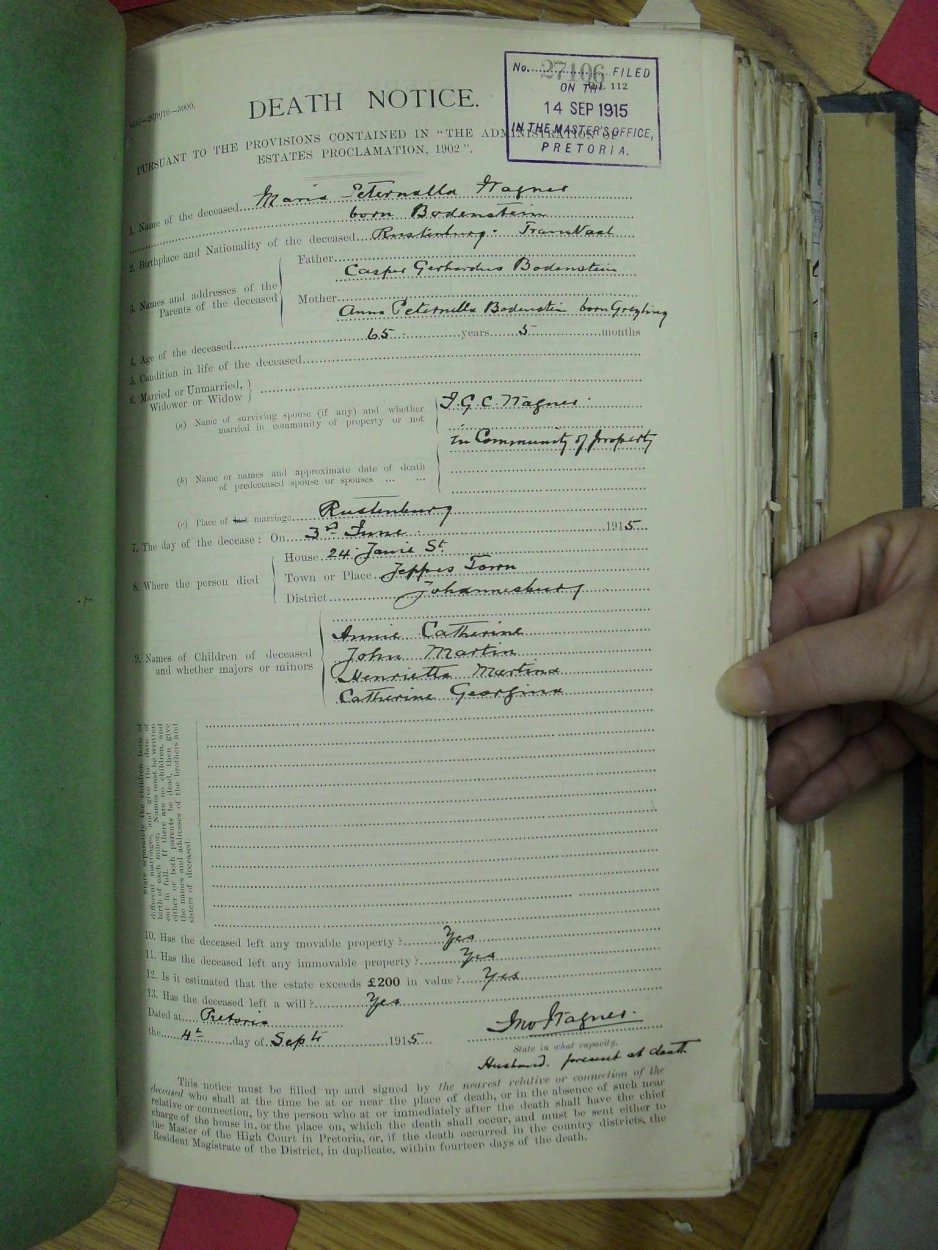 No. 27106 FILED
ON TH
112
14 SEP 1915
IN THE MASTER'S OFFICE,
PRETORIA.
DEATH NOTICE.
PURSUANT TO THE PROVISIONS CONTAINED IN "THE ADMINISTRATION OF
ESTATES PROCLAMATION, 1902".
1. Name of the deceased Maria Peternella Wagner
born Bodenstein
2. Birthplace and Nationality of the deceased Rustenburg. Transvaal
3. Names and addresses of the Parents of the deceased
Father
Casper Gerhardus Bodenstein
Mother
Anna Peternella Bodenstein born Greyling
4. Age of the deceased 65 years 5 months
5. Condition in life of the deceased
6. Married or Unmarried,
Widower or Widow
(a) Name of surviving spouse (if any) and whether
married in community of property or not
J.G.C. Wagner.
In Community of Property
(b) Name or names and approximate date of death
of predeceased spouse or spouses ... ...
(c) Place of last marriage Rustenburg
7. The day of the decease: On 3rd June 1915
8. Where the person died
House 24 Janie St
Town or Place Jeppes Town
District Johannesburg
9. Names of Children of deceased
and whether majors or minors
Annie Catherine
John Martin
Henrietta Martina
Catherine Georgina
State separately the children born of
different marriages, and give the date of
birth of each minor. Names must be written
out in full. If there are no children, and
either or both parents be dead, then give
the names and addresses of the brothers and
sisters of deceased.
10. Has the deceased left any movable property? Yes
11. Has the deceased left any immovable property? Yes
12. Is it estimated that the estate exceeds £200 in value? Yes
13. Has the deceased left a will? Yes
Dated at Pretoria
the 4th day of Septr 1915
Jno Wagner.
State in what capacity.
Husband. present at death
This notice must be filled up and signed by the nearest relative or connection of the
deceased who shall at the time be at or near the place of death, or in the absence of such near
relative or connection, by the person who at or immediately after the death shall have the chief
charge of the house in, or the place on, which the death shall occur, and must be sent either to
the Master of the High Court in Pretoria, or, if the death occurred in the country districts, the
Resident Magistrate of the District, in duplicate, within fourteen days of the death.